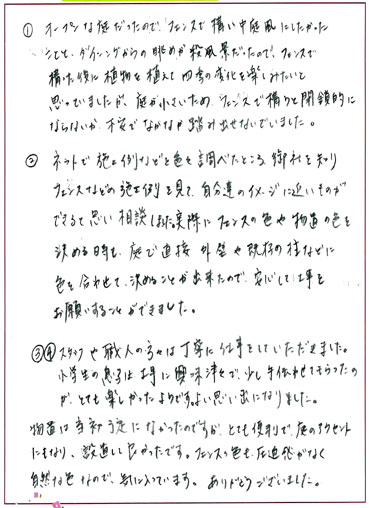 ① オープンな庭だったので、フェンスで構い中庭風にしたかった
ことと、ダイニングからの眺めが殺風景だったので、フェンスで
構った後に植物を植えて四季の変化を楽しみたいと
思っていましたが、庭が小さいため、フェンスで構うと閉鎖的に
ならないか不安でなかなか踏み出せないでいました。
② ネットで施工例などを色々調べたところ、御社を知り
フェンスなどの施工例を見て、自分達のイメージに近いものが
できると思い相談しました。実際にフェンスの色や物置の色を
決める時も、庭で直接外壁や既存の柱などに
色を合わせて、決めることが出来たので、安心して工事を
お願いすることができました。
③④ スタッフや職人の方々は丁寧に仕事をしていただきました。
小学生の息子は工事に興味津々で、少し手伝わせてもらったの
が、とても楽しかったようです。よい思い出になりました。
物置は当初予定になかったのですが、とても便利で、庭のアクセント
にもなり、設置して良かったです。フェンスの色も、圧迫感がなく
自然な色なので、気に入っています。ありがとうございました。